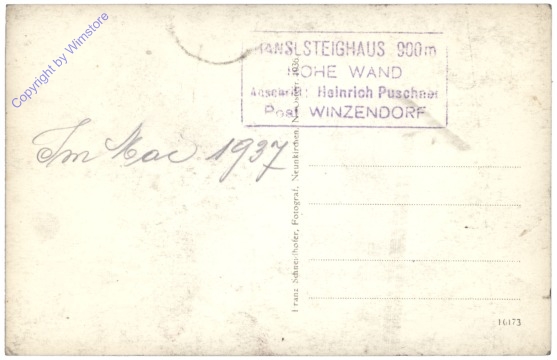 Copyright by Wimstore
HANSLSTEIGHAUS 900m
HOHE WAND
Anschrift: Heinrich Puschner
Post WINZENDORF
Im Mai 1937
Franz Schneilhofer, Fotograf, Neunkirchen,
16173